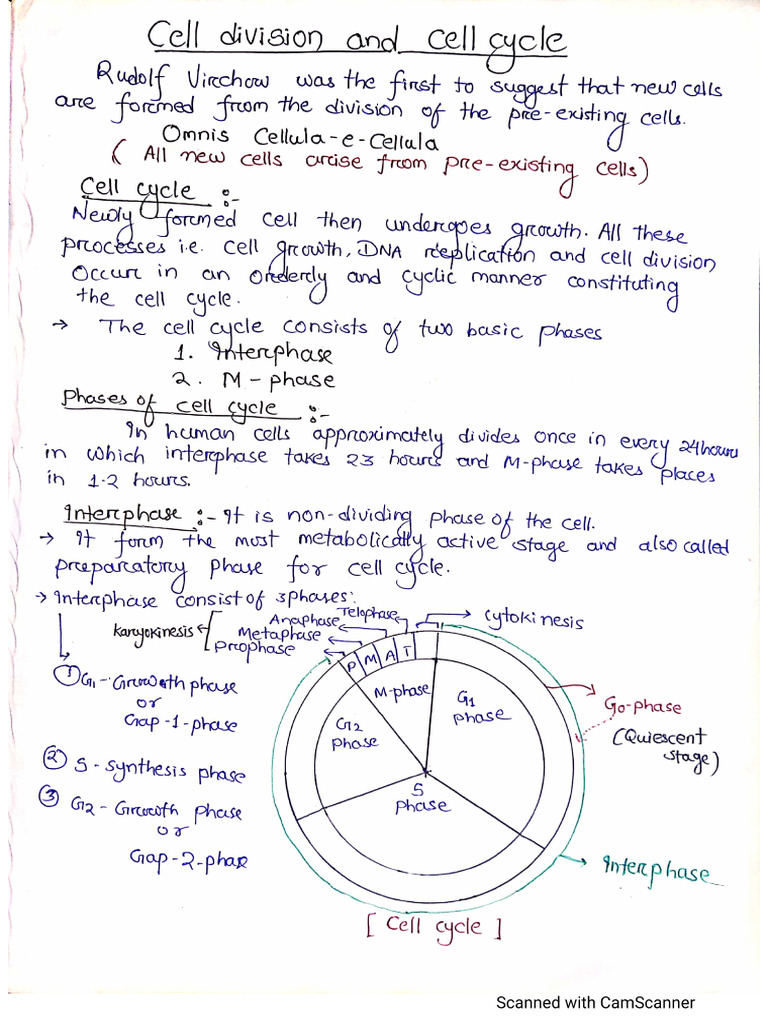 Cell division and cell cycle
Rudolf Virchow was the first to suggest that new cells
are formed from the division of the pre-existing cells.
Omnis Cellula-e-Cellula
( All new cells arise from pre-existing cells)
Cell cycle :-
Newly formed cell then undergoes growth. All these
processes i.e. cell growth, DNA replication and cell division
occur in an orderly and cyclic manner constituting
the cell cycle.
→ The cell cycle consists of two basic phases
1. Interphase
2. M - phase
Phases of cell cycle :-
In human cells approximately divides once in every 24hours
in which interphase takes 23 hours and M-phase takes places
in 1-2 hours.
Interphase :- It is non-dividing phase of the cell.
→ It form the most metabolically active stage and also called
preparatory phase for cell cycle.
→ Interphase consist of 3phases:
① G1 - Growth phase
or
Gap-1-phase
② S - synthesis phase
③ G2 - Growth phase
or
Gap-2-phase
Karyokinesis
Telophase
Anaphase
Metaphase
Prophase
Cytokinesis
P M A T
M-phase
G1
phase
G2
phase
S
phase
Go-phase
(Quiescent
stage)
Interphase
[ Cell cycle ]
Scanned with CamScanner